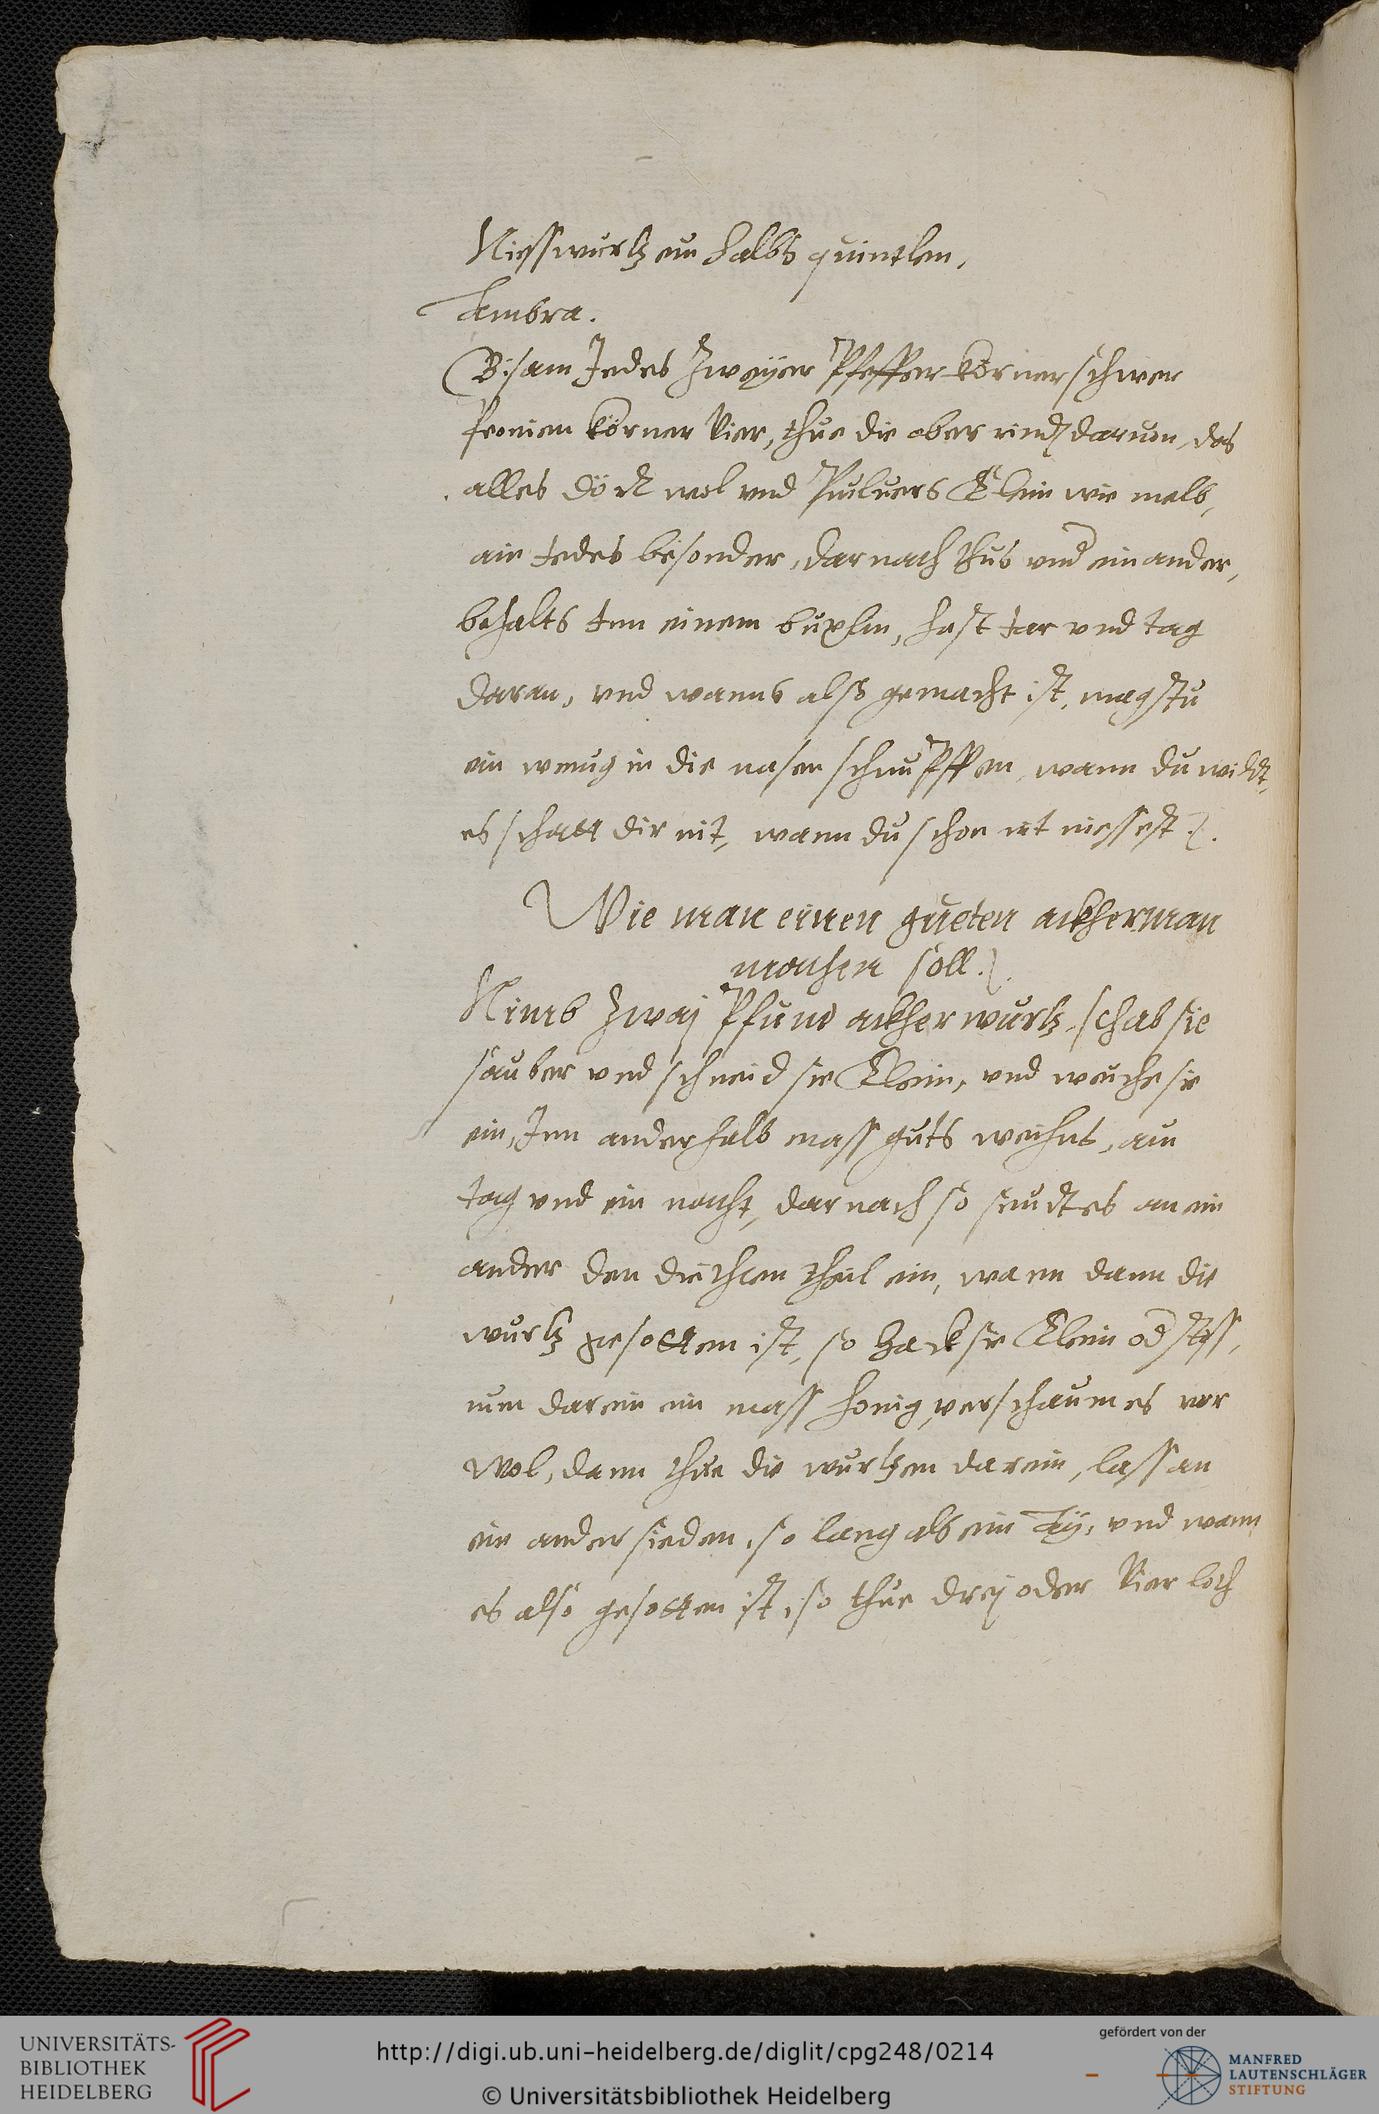 Niesswurtz ein halbs quintlen,
Ambra.
Bisam Jedes zweyer Pfeffer körner schwer
peonien körner vier, thue die ober rind daruon, das
alles dör wol vnd Puluers Klein wie melb,
ain Jedes besonder, darnach thus vnd einander,
behalts Inn einem buxlin, hast Jar vnd tag
daran, vnd wanns also gemacht ist, magstu
ein wenig in die nasen schnupffen, wann du wildt,
es schatt dir nit, wann du schon nit niessest.
Wie man einen gueten ackherman
machen soll.
Nimb zwaj Pfund ackher wurtz, schab sie
sauber vnd schneid sie Klein, vnd weiche sie
ein, Inn anderhalb mass guts weins, ain
tag vnd ein nacht, darnach so seudt es an ein
ander den dritten theil ein, wann dann die
wurtz gesotten ist, so hack sie Klein od stoss,
nim darein ein mass honig, verschaum es vor
wol, dann thue die wurtzen darein, lass an
ein ander sieden, so lang als ein Ay, vnd wann
es also gesotten ist, so thue drej oder vier loth
UNIVERSITÄTS-
BIBLIOTHEK
HEIDELBERG
http://digi.ub.uni-heidelberg.de/diglit/cpg248/0214
© Universitätsbibliothek Heidelberg
gefördert von der
MANFRED
LAUTENSCHLÄGER
STIFTUNG